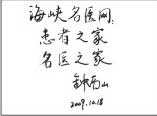 海峡名医网:
患者之家
名医之家
钟南山
2009.12.18